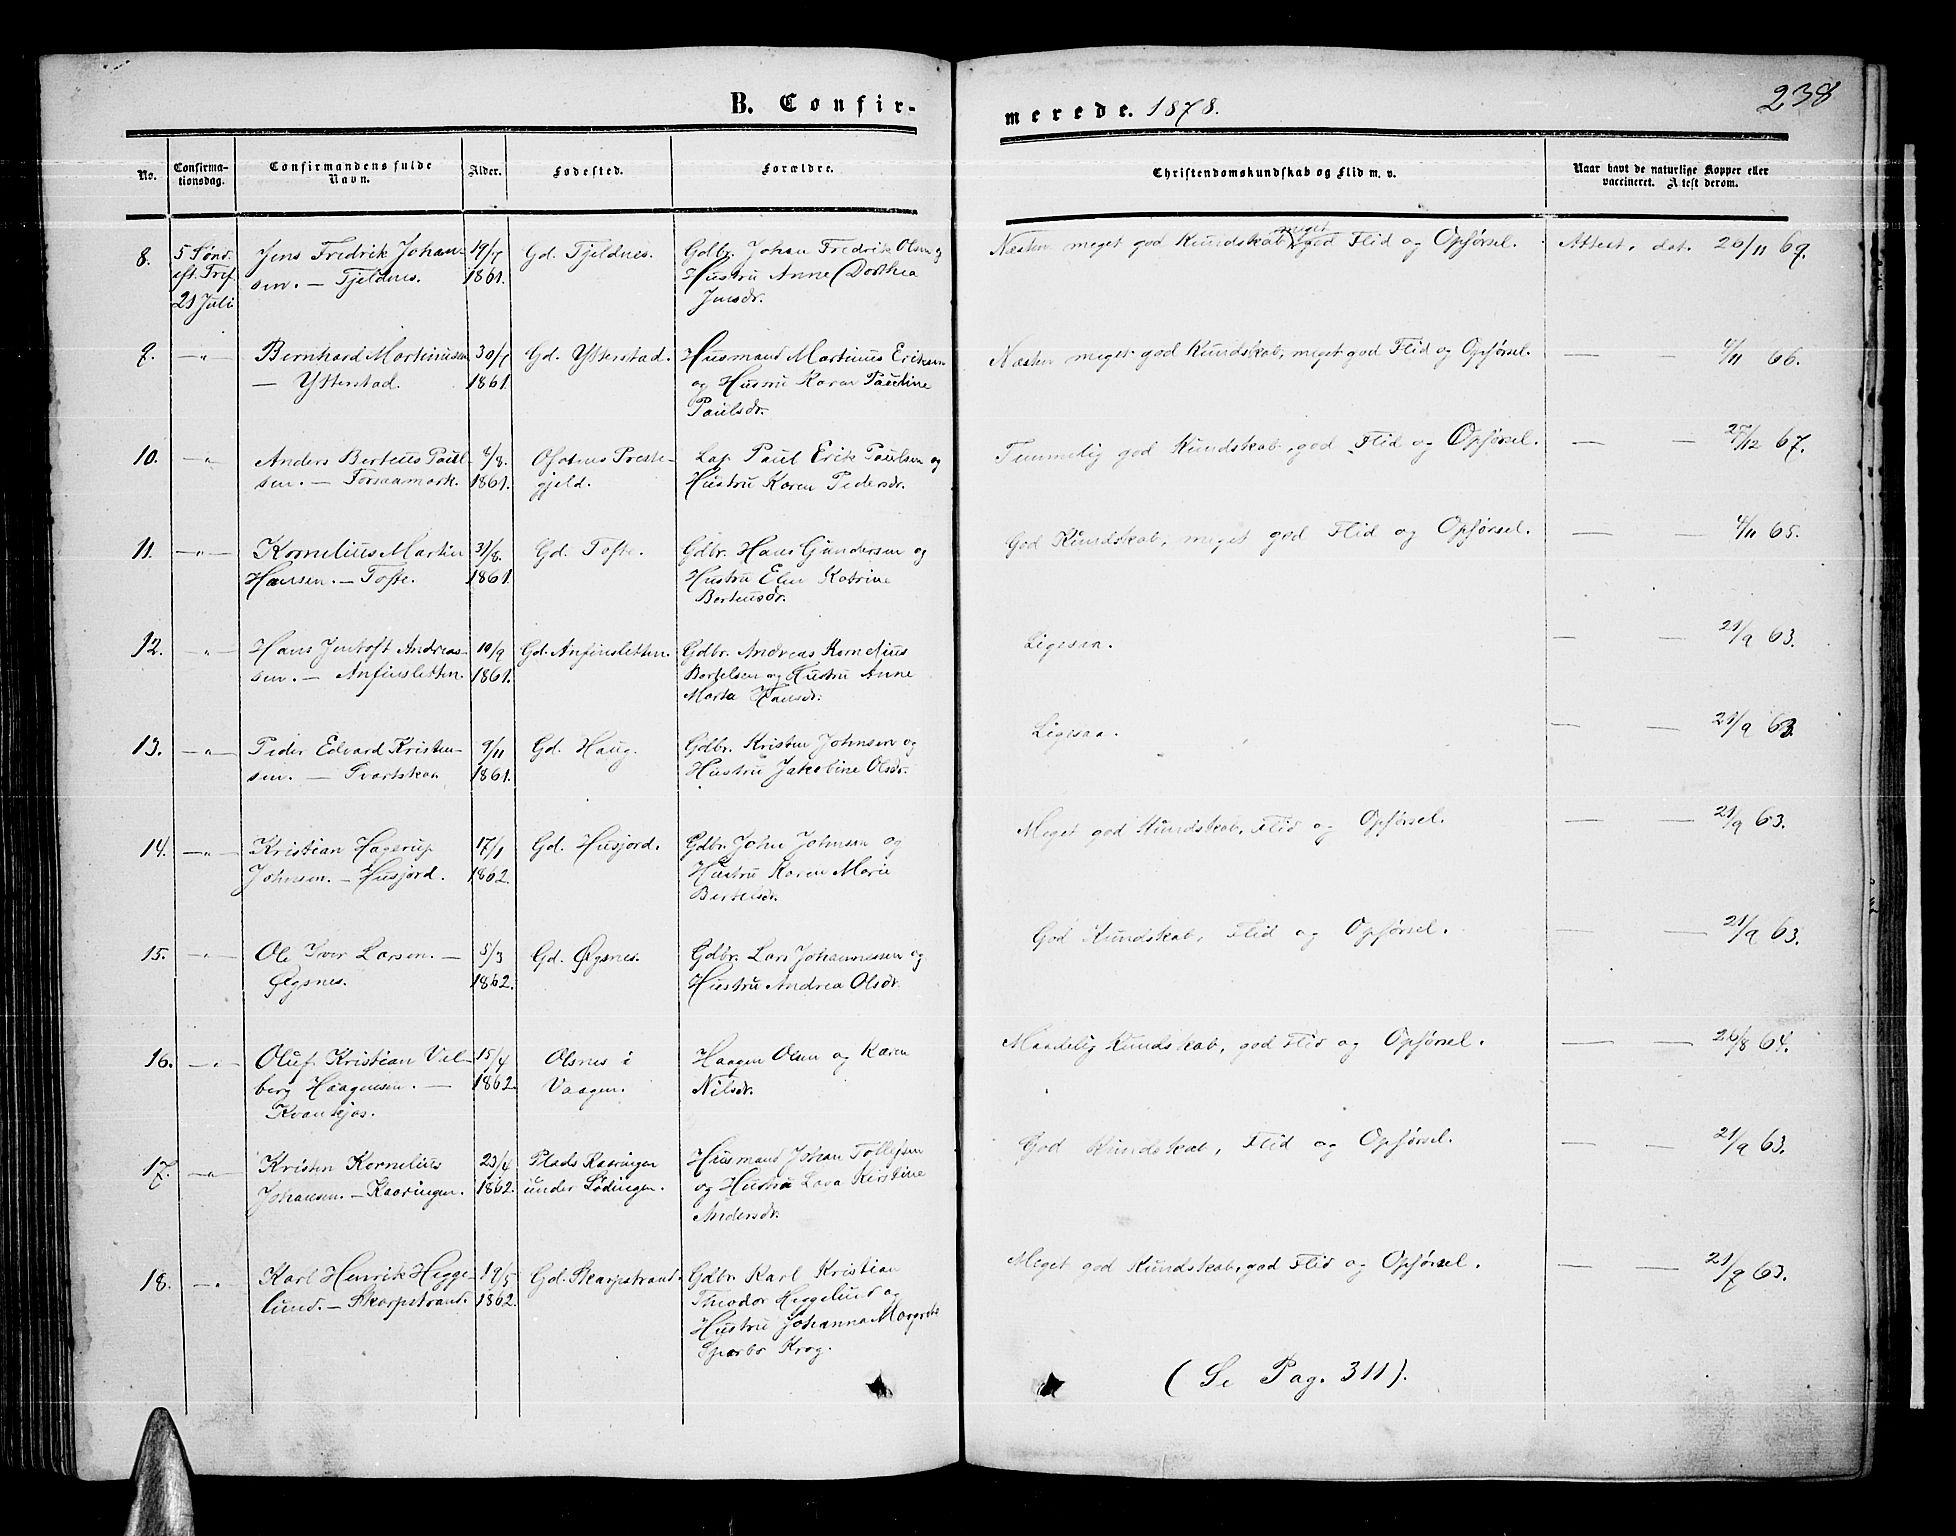 B. Confir-
merede. 1878.
238
No.
Confirma-
tionsdag.
Confirmandens fulde
Navn.
Alder.
Fødested.
Forældre.
Christendomskundskab og Flid m. v.
Naar havt de naturlige Kopper eller
vaccineret. Attest derom.
8. 5 Sønd. Jens Fredrik Johan- 19/7 Gd. Tjeldnes. Gdbr. Johan Fredrik Olsen og Næsten meget god Kundskab, meget god Flid og Opførsel. Attest. dat. 20/11 69.
eft. Tref. sen. — Tjeldnes. 1861. Hustru Anne Dorthea
21 Juli Jensdr.
9. —„— Bernhard Martinusen 30/7 Gd. Ytterstad. Husmand Martinus Eriksen Næsten meget god Kundskab, meget god Flid og Opførsel. — — 4/11 66.
— Ytterstad. 1861. og Hustru Karen Pauline
Paulsdr.
10. —„— Anders Berteus Paul- 4/8 Ofotens Preste- Lap Paul Erik Paulsen og Temmelig god Kundskab, god Flid og Opførsel. — — 27/12 67.
sen. — Forsaamark. 1861. gjeld. Hustru Karen Pedersdr.
11. —„— Kornelius Martin 31/8. Gd. Tofte. Gdbr. Hans Gundersen og God Kundskab, meget god Flid og Opførsel. — — 4/11 65.
Hansen. — Tofte. 1861. Hustru Elen Katrine
Berteusdr.
12. —„— Hans Jentoft Andreas- 10/9 Gd. Anfinsletten. Gdbr. Andreas Kornelius Ligesaa. — — 21/9 63.
sen. — Anfinsletten. 1861. Bertelsen og Hustru Anne
Marta Hansdr.
13. —„— Peder Edvard Kristen- 9/11 Gd. Haug. Gdbr. Kristen Johnsen og Ligesaa. — — 21/9 63.
sen. — 1861. Hustru Jakobine Olsdr.
14. —„— Kristian Hagerup 17/1 Gd. Husjord. Gdbr. John Johnsen og Meget god Kundskab, Flid og Opførsel. — — 21/9 63.
Johnsen. — Husjord. 1862. Hustru Karen Marie
Bertelsdr.
15. —„— Ole Iver Larsen. — 5/3 Gd. Øgsnes. Gdbr. Lars Johannessen og God Kundskab, Flid og Opførsel. — — 21/9 63.
Øgsnes. 1862. Hustru Andrea Olsdr.
16. —„— Oluf Kristian Vel- 15/4 Olsnes i Haagen Olsen og Karen Maadelig Kundskab, god Flid og Opførsel. — — 26/8 64.
berg Haagensen. — 1862. Vaagen. Nilsdr.
17. —„— Kristen Kornelius 23/4 Plads Kaaringen Husmand Johan Tollefsen God Kundskab, Flid og Opførsel. — — 21/9 63.
Johansen. — Kaaringen. 1862. under Lødingen. og Hustru Lava Kirstine
Andersdr.
18. —„— Karl Henrik Hegge- 19/5 Gd. Skarpstrand. Gdbr. Karl Kristian Meget god Kundskab, god Flid og Opførsel. — — 21/9 63.
lund. — Skarpstrand. 1862. Theodor Heggelund og
Hustru Johanna Margrete
Sparbo Krog.
(Se Pag. 311).